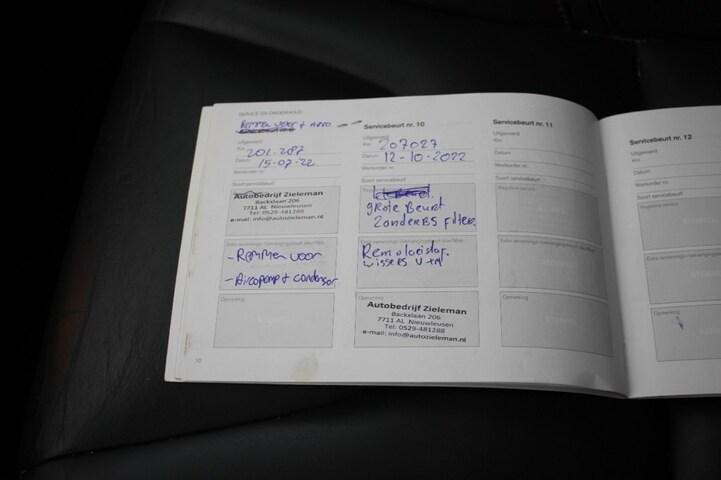 SERVICE EN ONDERHOUD
REMMEN VOOR + AIRCO
Uitgevoerd
Km 201.287
Datum 15-07-22
Werkorder nr.
Soort servicebeurt
Autobedrijf Zieleman
Backxlaan 206
7711 AL Nieuwleusen
Tel: 0529-481288
e-mail: info@autozieleman.nl
- Remmen voor
- Aircopomp + condensor
Opmerking
10
Servicebeurt nr. 10
Uitgevoerd
Km 207027
Datum 12-10-2022
Werkorder nr.
Soort servicebeurt
grote Beurt
Remvloeistof.
wissers V+A
Opmerking
Autobedrijf Zieleman
Backxlaan 206
7711 AL Nieuwleusen
Tel: 0529-481288
e-mail: info@autozieleman.nl
Servicebeurt nr. 11
Uitgevoerd
Km
Datum
Werkorder nr.
Soort servicebeurt
Reguliere service
Opmerking
Servicebeurt nr. 12
Uitgevoerd
Km
Datum
Werkorder nr.
Soort servicebeurt
Reguliere service
Opmerking